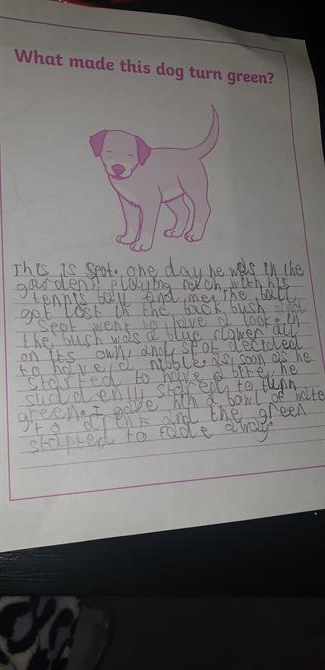 What made this dog turn green?
This is Spot. one day he was in the
garden playing catch with his
tennis ball and me. The ball
got lost in the back bush
Spot went to have a look. in
the bush was a blue flower all
on its own, and Spot decided
to have a nibble. as soon as he
started to have a bite, he
suddenly started to turn
green. I gave him a bowl of wate
to drink and the green
started to fade away